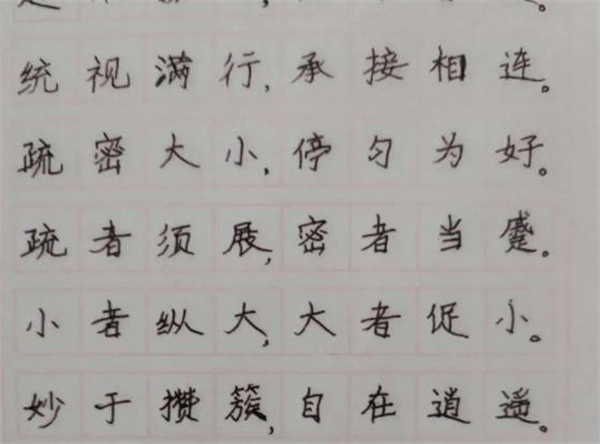 统视满行，承接相连。
疏密大小，停匀为好。
疏者须展，密者当蹙。
小者纵大，大者促小。
妙于攒簇，自在逍遥。